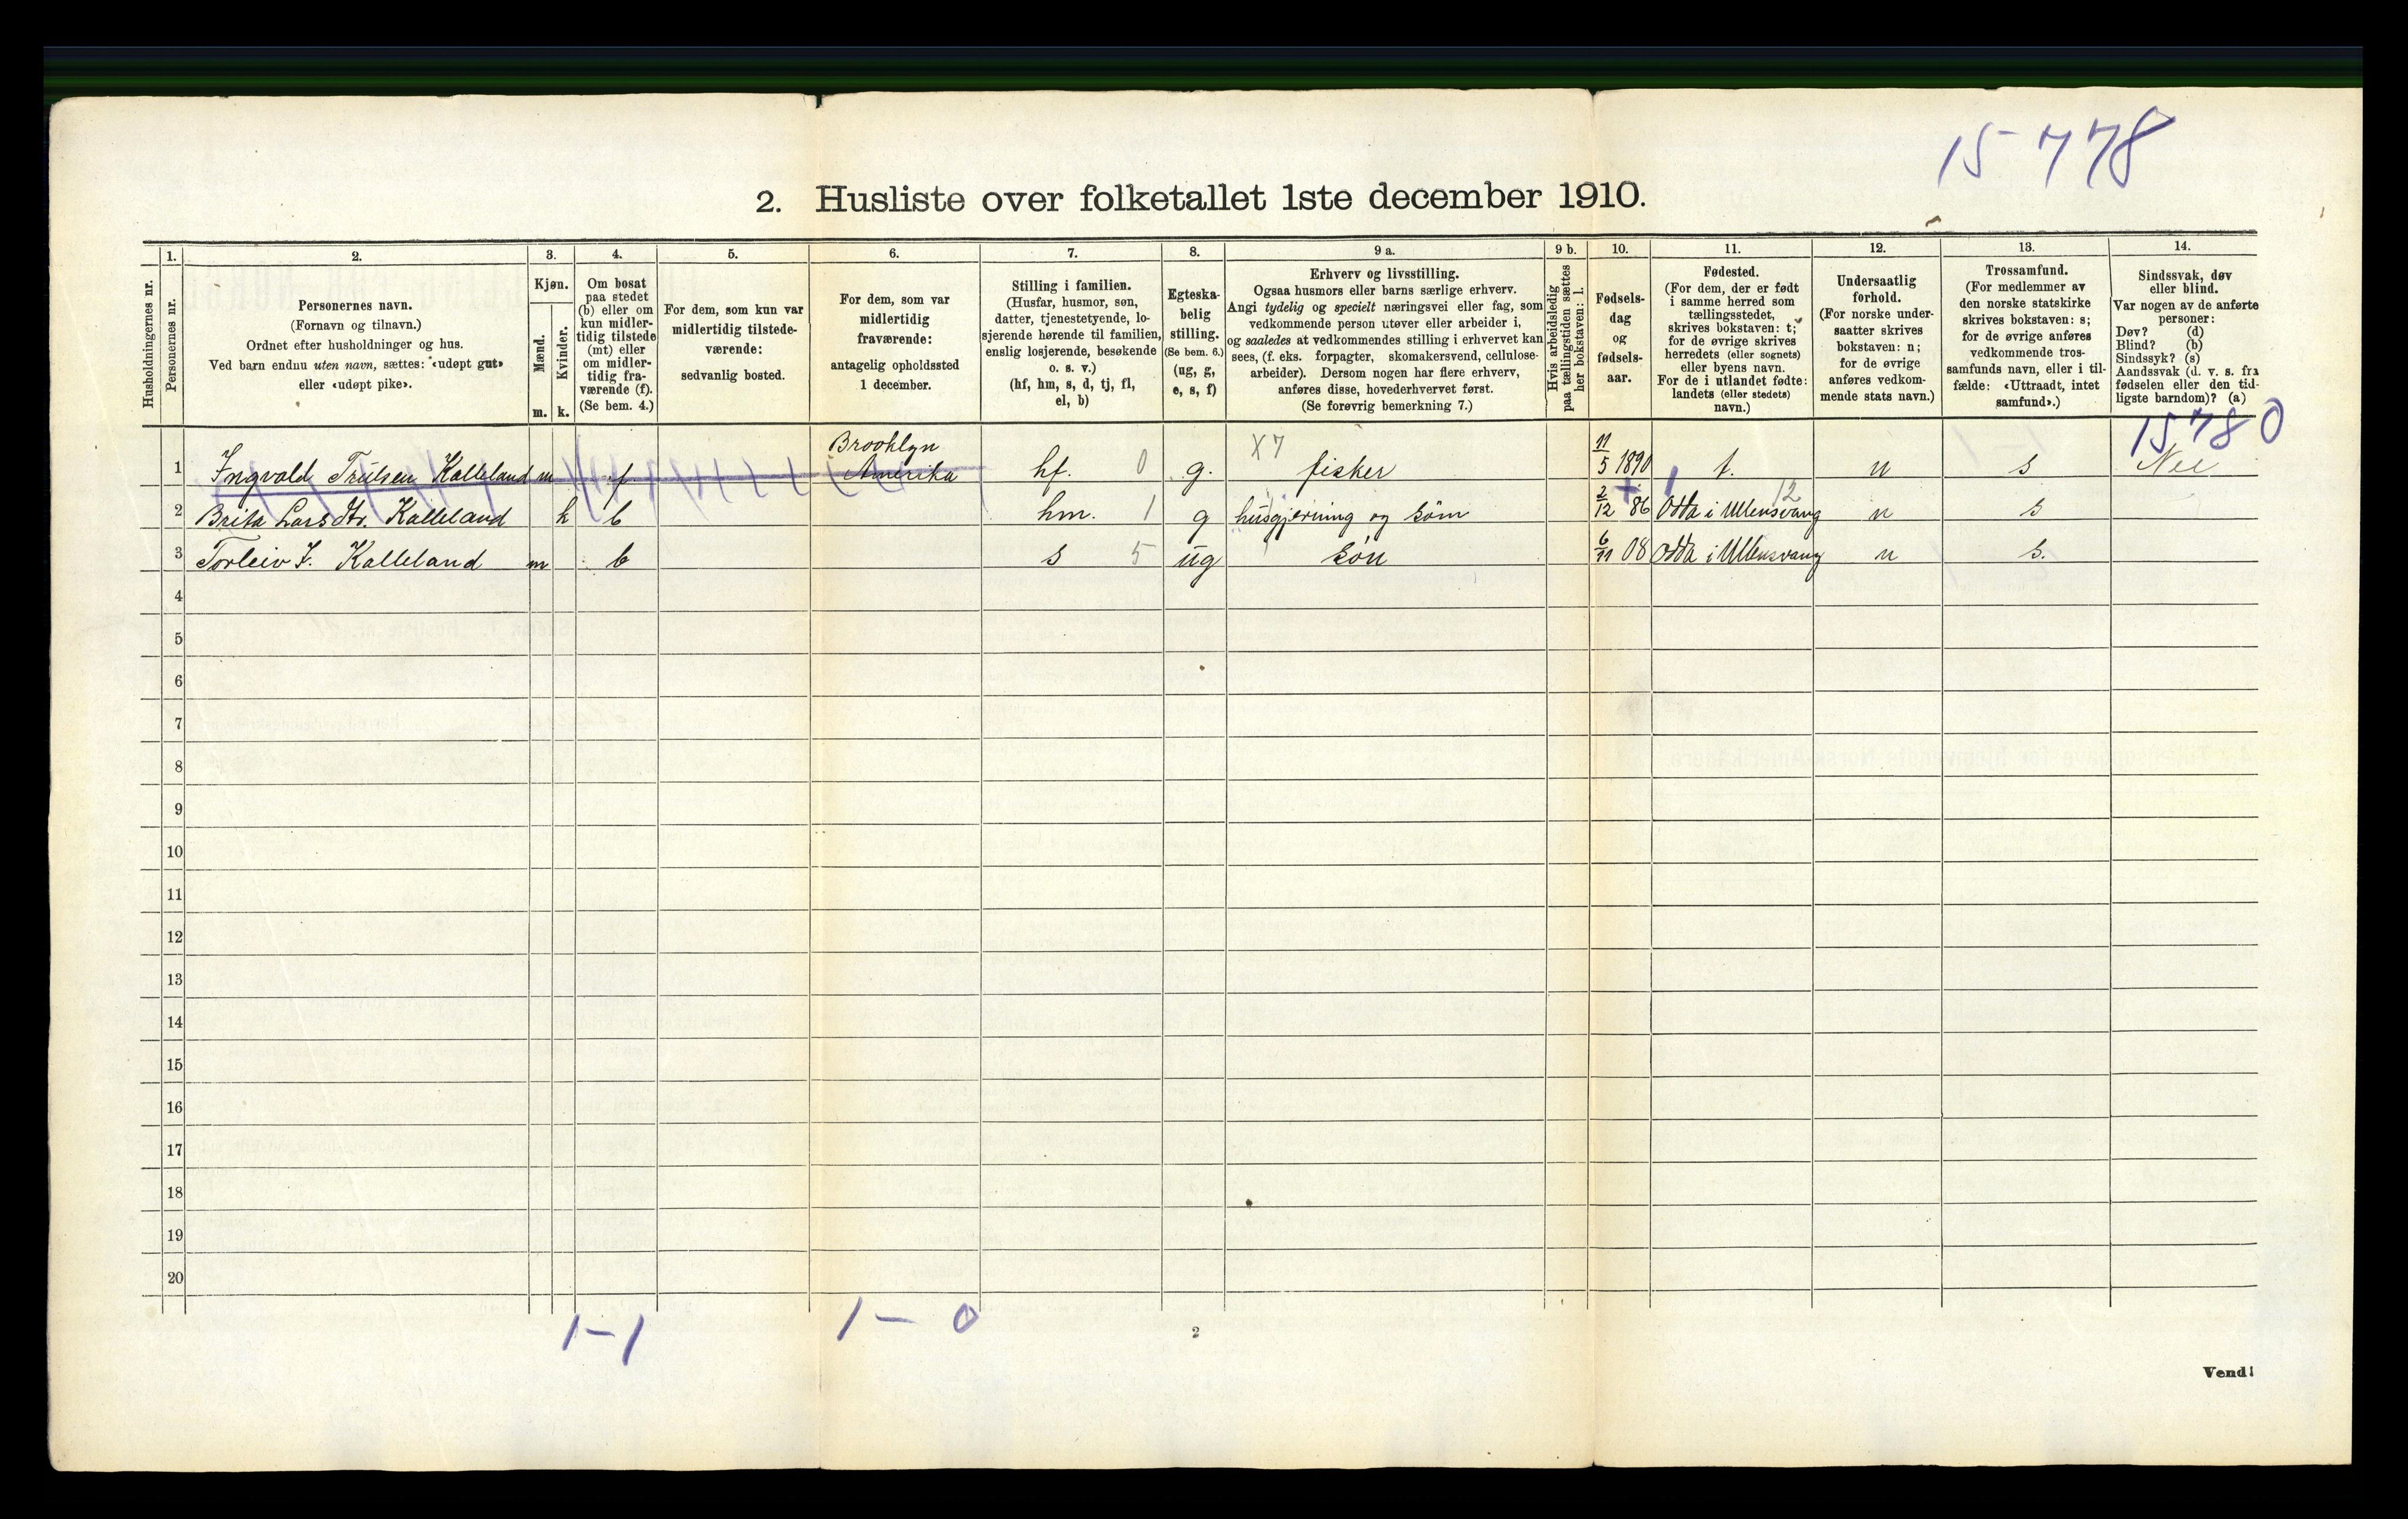 15778
2. Husliste over folketallet 1ste december 1910.
Husholdningernes nr.
1.
Personernes nr.
2.
Personernes navn.
(Fornavn og tilnavn.)
Ordnet efter husholdninger og hus.
Ved barn endnu uten navn, sættes: «udøpt gut»
eller «udøpt pike».
3.
Kjøn.
Mænd.
Kvinder.
m. k.
4.
Om bosat
paa stedet
(b) eller om
kun midler-
tidig tilstede
(mt) eller
om midler-
tidig fra-
værende (f).
(Se bem. 4.)
5.
For dem, som kun var
midlertidig tilstede-
værende:
sedvanlig bosted.
6.
For dem, som var
midlertidig
fraværende:
antagelig opholdssted
1 december.
7.
Stilling i familien.
(Husfar, husmor, søn,
datter, tjenestetyende, lo-
sjerende hørende til familien,
enslig losjerende, besøkende
o. s. v.)
(hf, hm, s, d, tj, fl,
el, b)
8.
Egteska-
belig
stilling.
(Se bem. 6.)
(ug, g,
e, s, f)
9 a.
Erhverv og livsstilling.
Ogsaa husmors eller barns særlige erhverv.
Angi tydelig og specielt næringsvei eller fag, som
vedkommende person utøver eller arbeider i,
og saaledes at vedkommendes stilling i erhvervet kan
sees, (f. eks. forpagter, skomakersvend, cellulose-
arbeider). Dersom nogen har flere erhverv,
anføres disse, hovederhvervet først.
(Se forøvrig bemerkning 7.)
9 b.
Hvis arbeidsledig
paa tællingstiden sættes
her bokstaven: l.
10.
Fødsels-
dag
og
fødsels-
aar.
11.
Fødested.
(For dem, der er født
i samme herred som
tællingsstedet,
skrives bokstaven: t;
for de øvrige skrives
herredets (eller sognets)
eller byens navn.
For de i utlandet fødte:
landets (eller stedets)
navn.)
12.
Undersaatlig
forhold.
(For norske under-
saatter skrives
bokstaven: n;
for de øvrige
anføres vedkom-
mende stats navn.)
13.
Trossamfund.
(For medlemmer av
den norske statskirke
skrives bokstaven: s;
for de øvrige anføres
vedkommende tros-
samfunds navn, eller i til-
fælde: «Uttraadt, intet
samfund».)
14.
Sindssvak, døv
eller blind.
Var nogen av de anførte
personer:
Døv? (d)
Blind? (b)
Sindssyk? (s)
Aandssvak (d. v. s. fra
fødselen eller den tid-
ligste barndom)? (a)
15780
1 Ingvald Trulsen Kalleland m f Brooklyn Amerika hf. 0 g. X7 fisker 11/5 1890 t. n s Nei
2 Brita Larsdtr. Kalleland k b hm. 1 g husgjerning og søm 2/12 86 Odda i Ullensvang 12 n s
3 Torleiv I. Kalleland m b s 5 ug søn 6/11 08 Odda i Ullensvang n s.
4
5
6
7
8
9
10
11
12
13
14
15
16
17
18
19
20
1-1 1-0
2
Vend!